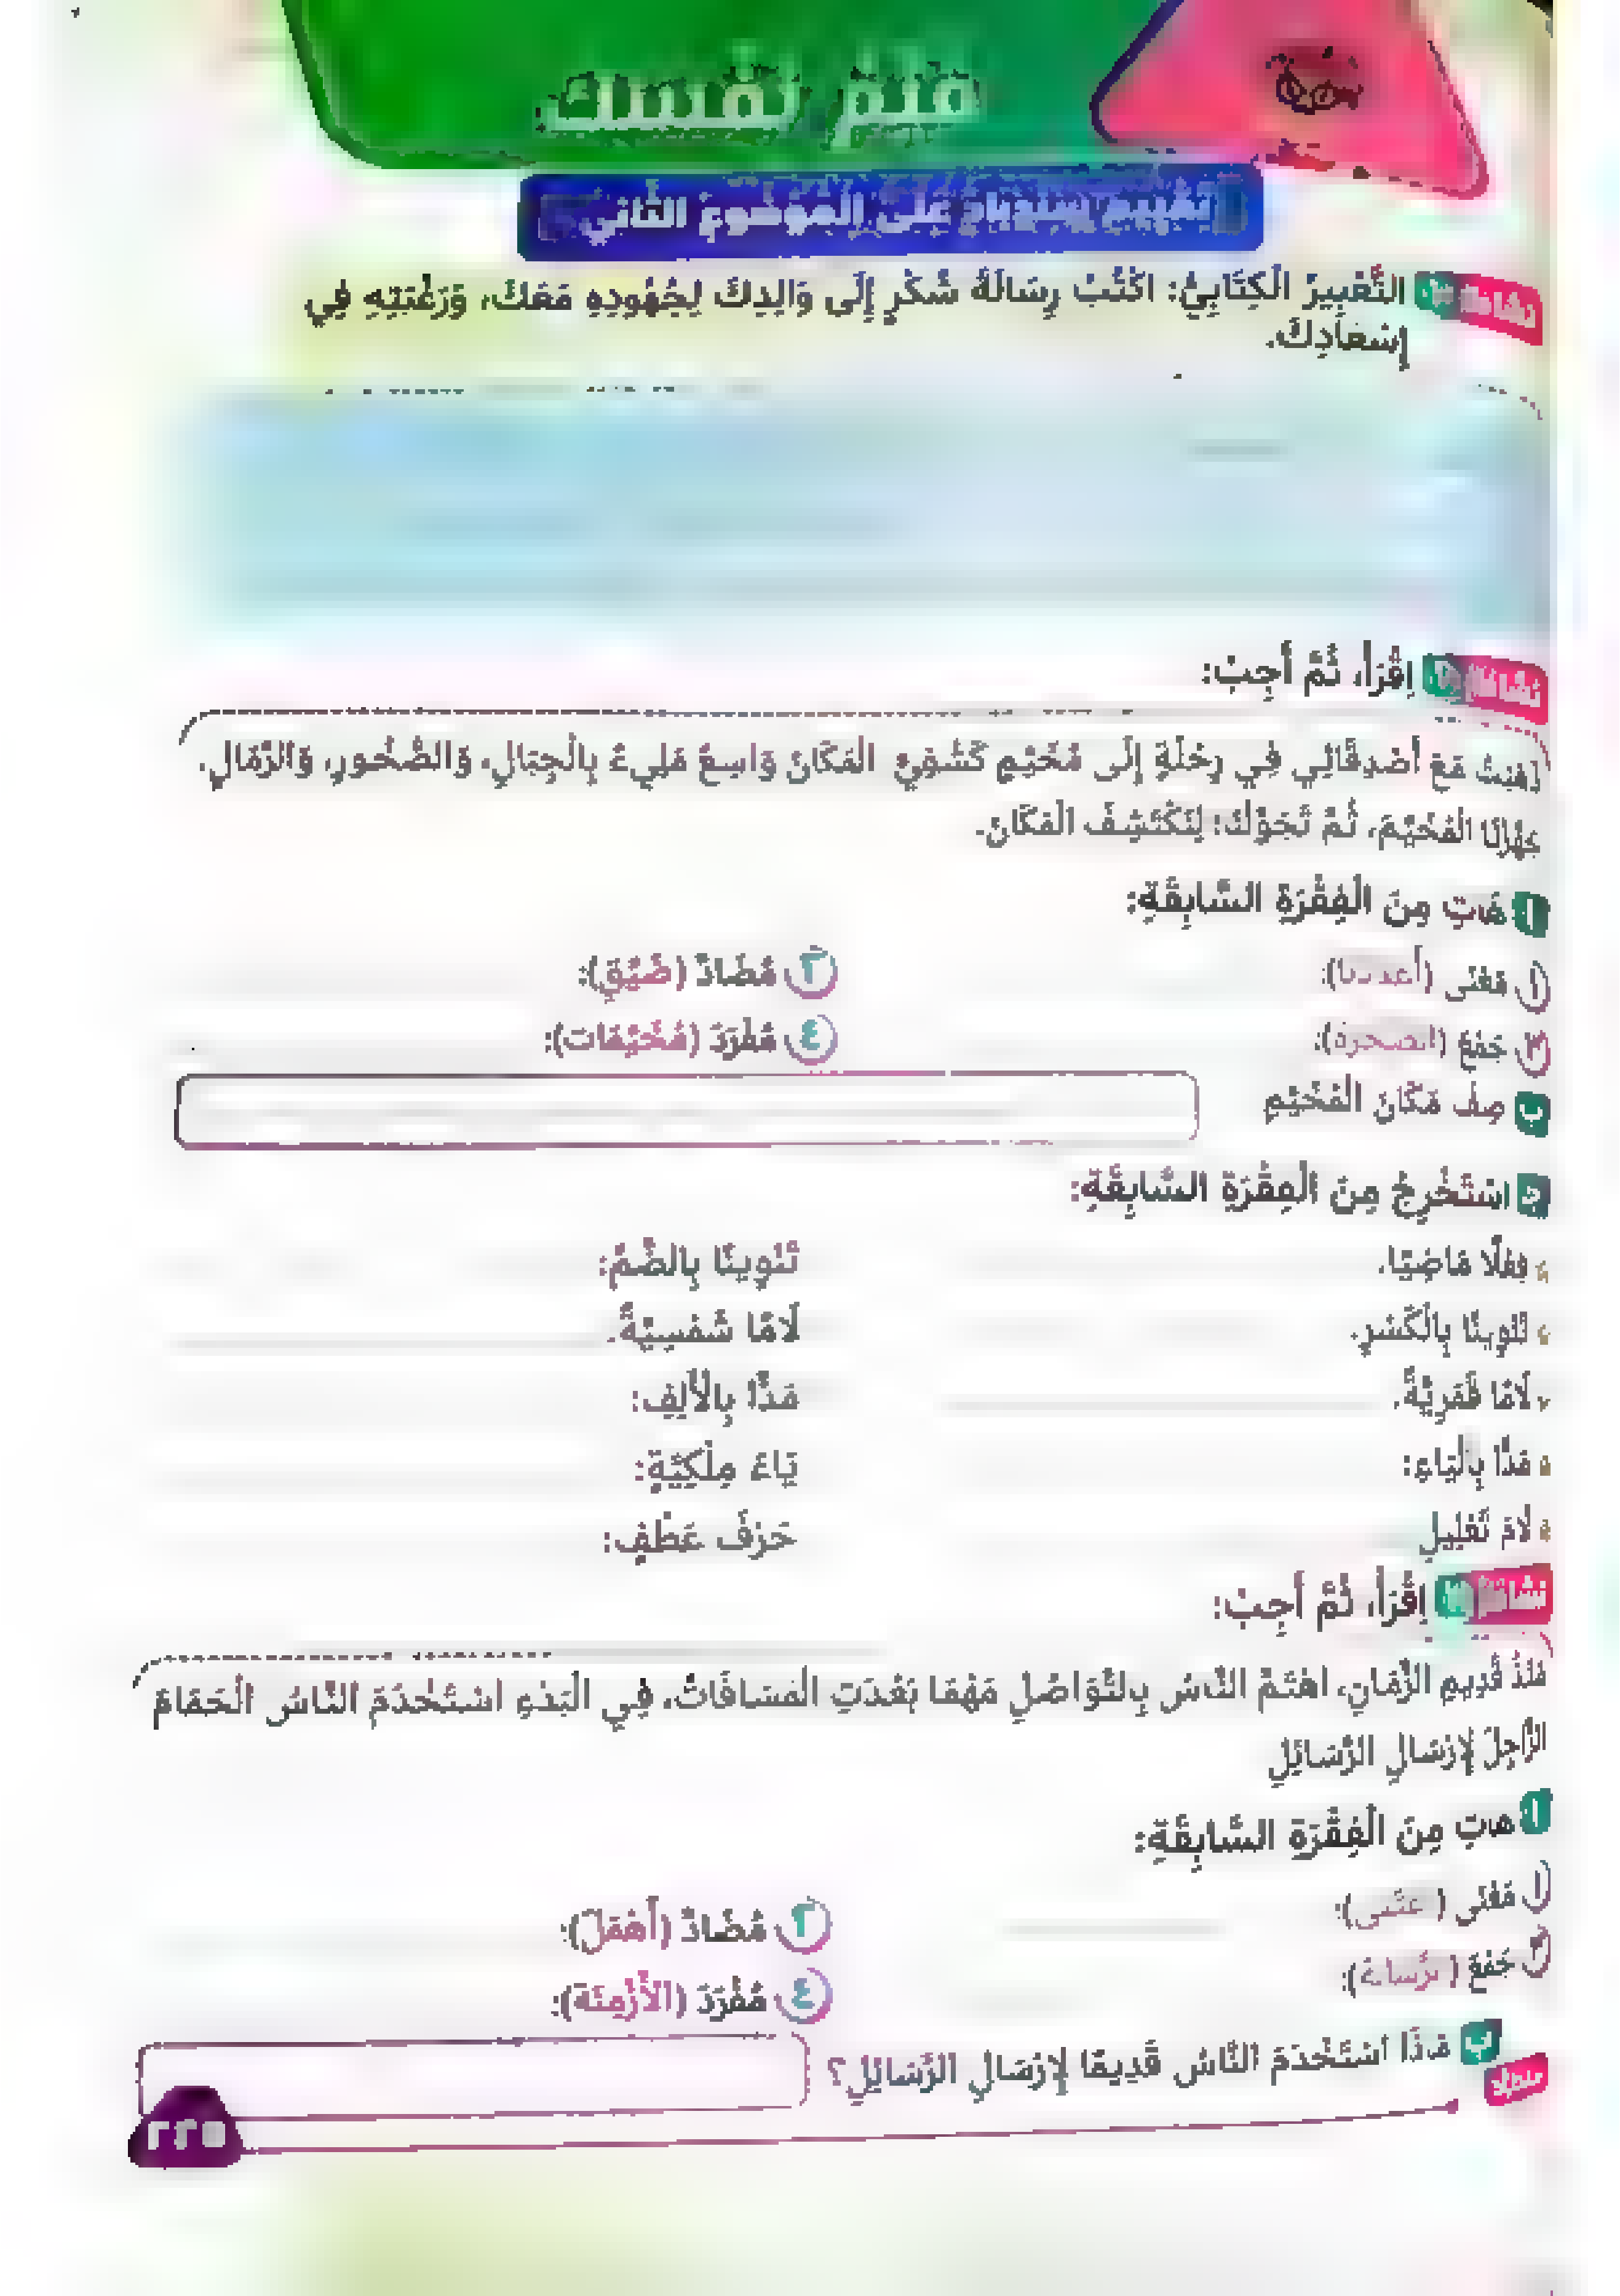 قيم نفسك
تقييم سلوبار على الموضوع الثاني
نشاط التَّعْبِيرُ الْكِتَابِيُّ: اكْتُبْ رِسَالَةَ شُكْرٍ إِلَى وَالِدِكَ لِجُهُودِهِ مَعَكَ، وَرَغْبَتِهِ فِي
إِسْعَادِكَ.
نشاط اِقْرَأْ، ثُمَّ أَجِبْ:
ذَهَبْتُ مَعَ أَصْدِقَائِي فِي رِحْلَةٍ إِلَى مُخَيَّمٍ كَشْفِيٍّ الْمَكَانُ وَاسِعٌ مَلِيءٌ بِالْجِبَالِ، وَالصُّخُورِ، وَالرِّمَالِ.
جَهَّزْنَا الْمُخَيَّمَ، ثُمَّ تَجَوَّلْنَا؛ لِنَكْتَشِفَ الْمَكَانَ.
أ هَاتِ مِنَ الْفِقْرَةِ السَّابِقَةِ:
١ مَعْنَى (أعددنا): ٢ مُضَادَّ (ضَيِّقٍ):
٣ جَمْعَ (الصخرة): ٤ مُفْرَدَ (مُخَيَّمَات):
ب صِفْ مَكَانَ الْمُخَيَّمِ
ج اسْتَخْرِجْ مِنَ الْفِقْرَةِ السَّابِقَةِ:
فِعْلًا مَاضِيًا. تَنْوِينًا بِالضَّمِّ:
تَنْوِينًا بِالْكَسْرِ. لَامًا شَمْسِيَّةً.
لَامًا قَمَرِيَّةً. مَدًّا بِالْأَلِفِ:
مَدًّا بِالْيَاءِ: يَاءَ مِلْكِيَّةٍ:
لَامَ تَعْلِيلٍ حَرْفَ عَطْفٍ:
نشاط اِقْرَأْ، ثُمَّ أَجِبْ:
مُنْذُ قَدِيمِ الزَّمَانِ، اهْتَمَّ النَّاسُ بِالتَّوَاصُلِ مَهْمَا بَعُدَتِ الْمَسَافَاتُ، فِي الْبَدْءِ اسْتَخْدَمَ النَّاسُ الْحَمَامَ
الزَّاجِلَ لِإِرْسَالِ الرَّسَائِلِ
أ هَاتِ مِنَ الْفِقْرَةِ السَّابِقَةِ:
١ مَعْنَى (عتنى): ٢ مُضَادَّ (أَهْمَلَ):
٣ جَمْعَ (الرسالة): ٤ مُفْرَدَ (الْأَزْمِنَة):
ب مَاذَا اسْتَخْدَمَ النَّاسُ قَدِيمًا لِإِرْسَالِ الرَّسَائِلِ؟
٢٢٥